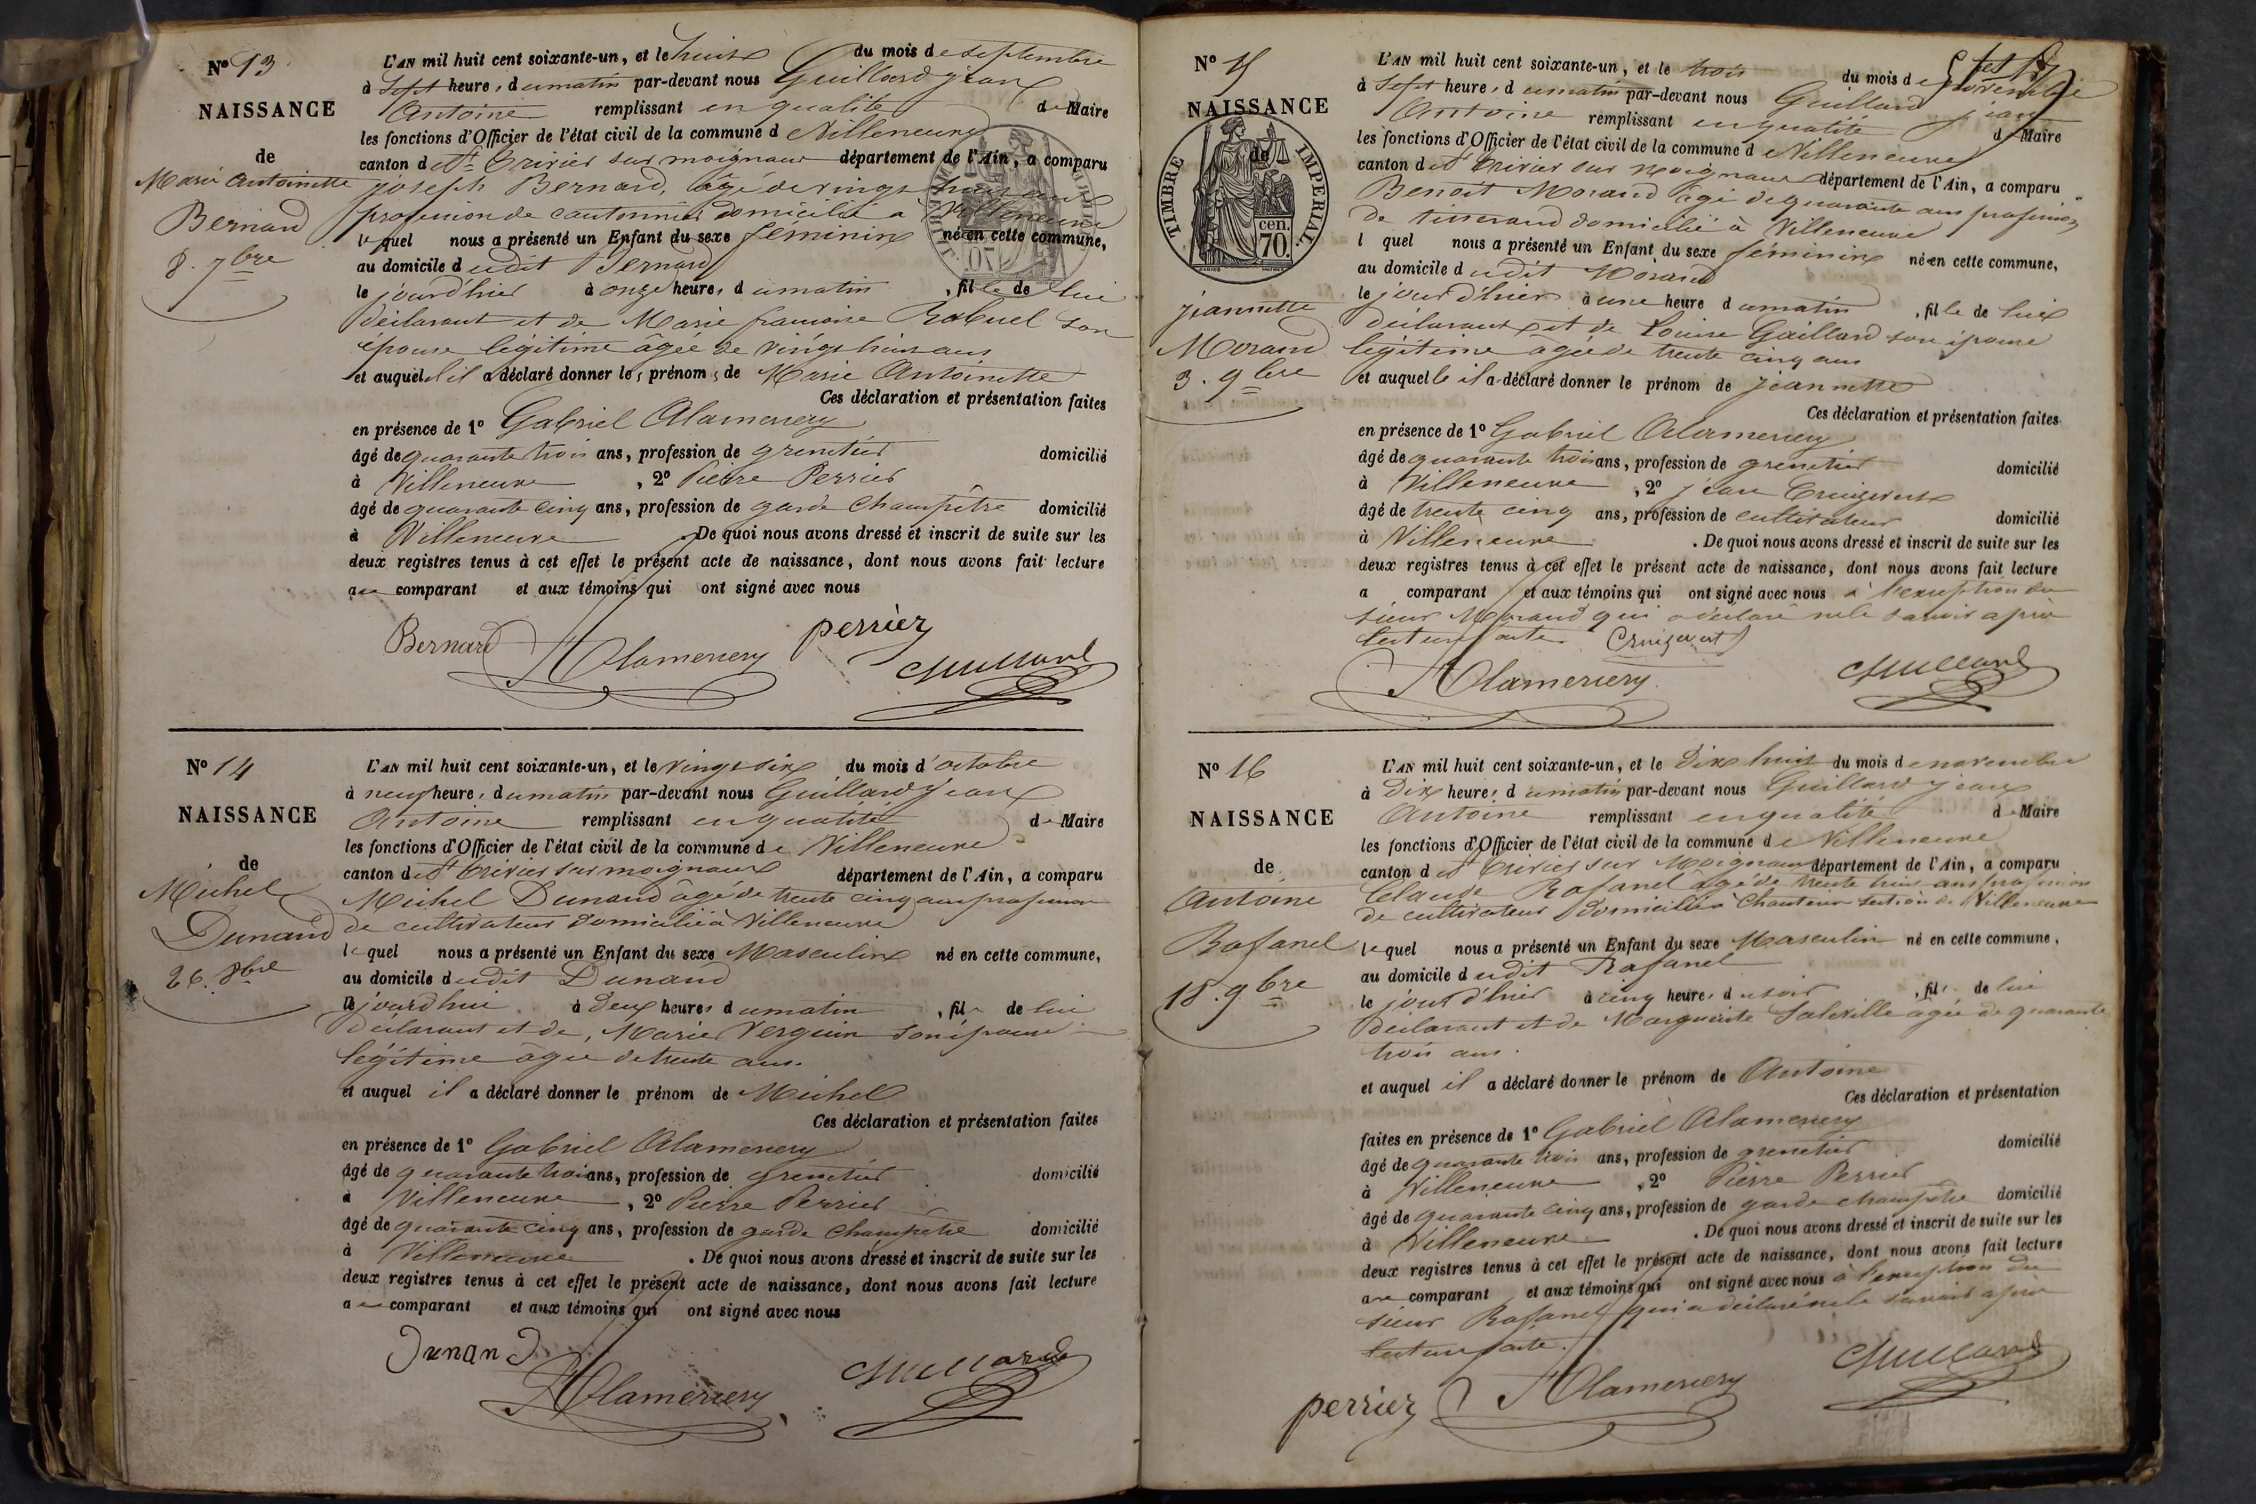 N° 13
NAISSANCE
de
Marie Antoinette
Bernard
8. 7bre
L'AN mil huit cent soixante-un, et le huit du mois de septembre
à sept heures du matin par-devant nous Guillard jean
Antoine remplissant en qualité de Maire
les fonctions d'Officier de l'état civil de la commune de Villeneuve
canton de St Trivier sur moignans département de l'Ain, a comparu
joseph Bernard, âgé de vingt huit ans
profession de cantonnier domicilié à Villeneuve
lequel nous a présenté un Enfant du sexe féminin née en cette commune,
au domicile dudit Bernard
le jour d'hier à onze heures du matin, fille de lui
déclarant et de Marie françoise Rabuel son
épouse légitime âgée de vingt huit ans
et auquel il a déclaré donner les prénoms de Marie Antoinette
Ces déclaration et présentation faites
en présence de 1° Gabriel Alamercery
âgé de quarante trois ans, profession de grenetier domicilié
à Villeneuve, 2° Pierre Perrier
âgé de quarante cinq ans, profession de garde champêtre domicilié
à Villeneuve. De quoi nous avons dressé et inscrit de suite sur les
deux registres tenus à cet effet le présent acte de naissance, dont nous avons fait lecture
au comparant et aux témoins qui ont signé avec nous
Bernard Alamercery perrier Guillard
N° 14
NAISSANCE
de
Michel
Dunand
26. 8bre
L'AN mil huit cent soixante-un, et le vingt six du mois d'octobre
à neuf heures du matin par-devant nous Guillard jean
Antoine remplissant en qualité de Maire
les fonctions d'Officier de l'état civil de la commune de Villeneuve
canton de St Trivier sur moignans département de l'Ain, a comparu
Michel Dunand âgé de trente cinq ans profession
de cultivateur domicilié à Villeneuve
lequel nous a présenté un Enfant du sexe Masculin né en cette commune,
au domicile dudit Dunand
le jourd'hui à deux heures du matin, fils de lui
déclarant et de, Marie Verguin son épouse
légitime âgée de trente ans.
et auquel il a déclaré donner le prénom de Michel
Ces déclaration et présentation faites
en présence de 1° Gabriel Alamercery
âgé de quarante trois ans, profession de grenetier domicilié
à Villeneuve, 2° Pierre Perrier
âgé de quarante cinq ans, profession de garde champêtre domicilié
à Villeneuve. De quoi nous avons dressé et inscrit de suite sur les
deux registres tenus à cet effet le présent acte de naissance, dont nous avons fait lecture
au comparant et aux témoins qui ont signé avec nous
Dunand Alamercery Guillard
N° 15
NAISSANCE
de
TIMBRE IMPERIAL.
70 cen.
jeannette
Morand
3. 9bre
L'AN mil huit cent soixante-un, et le trois du mois de novembre
à sept heures du matin par-devant nous Guillard jean
Antoine remplissant en qualité de Maire
les fonctions d'Officier de l'état civil de la commune de Villeneuve
canton de St Trivier sur moignans département de l'Ain, a comparu
Benoit Morand âgé de quarante ans profession
de tisserand domicilié à Villeneuve
l quel nous a présenté un Enfant du sexe féminin née en cette commune,
au domicile dudit Morand
le jour d'hier à une heure du matin, fille de lui
déclarant et de Louise Gaillard son épouse
légitime âgée de trente cinq ans
et auquel le il a déclaré donner le prénom de jeannette
Ces déclaration et présentation faites
en présence de 1° Gabriel Alamercery
âgé de quarante trois ans, profession de grenetier domicilié
à Villeneuve, 2° jean Cruizevert
âgé de trente cinq ans, profession de cultivateur domicilié
à Villeneuve. De quoi nous avons dressé et inscrit de suite sur les
deux registres tenus à cet effet le présent acte de naissance, dont nous avons fait lecture
a comparant et aux témoins qui ont signé avec nous à l'exception du
sieur Morand qui a déclaré ne le savoir après
lecture faite. Cruizevert
Alamercery Guillard
N° 16
NAISSANCE
de
Antoine
Rafanel
18. 9bre
L'AN mil huit cent soixante-un, et le Dix huit du mois de novembre
à Dix heures du matin par-devant nous Guillard jean
Antoine remplissant en qualité de Maire
les fonctions d'Officier de l'état civil de la commune de Villeneuve
canton de St Trivier sur Moignans département de l'Ain, a comparu
Claude Rafanel âgé de trente huit ans profession
de cultivateur domicilié à Chanteins section de Villeneuve
lequel nous a présenté un Enfant du sexe Masculin né en cette commune,
au domicile dudit Rafanel
le jour d'hier à cinq heures du soir, fils de lui
déclarant et de Marguerite âgée de quarante
trois ans.
et auquel il a déclaré donner le prénom de Antoine
Ces déclaration et présentation
faites en présence de 1° Gabriel Alamercery
âgé de quarante trois ans, profession de grenetier domicilié
à Villeneuve, 2° Pierre Perrier
âgé de quarante cinq ans, profession de garde champêtre domicilié
à Villeneuve. De quoi nous avons dressé et inscrit de suite sur les
deux registres tenus à cet effet le présent acte de naissance, dont nous avons fait lecture
au comparant et aux témoins qui ont signé avec nous à l'exception du
sieur Rafanel qui a déclaré ne le savoir après
lecture faite.
perrier Alamercery Guillard